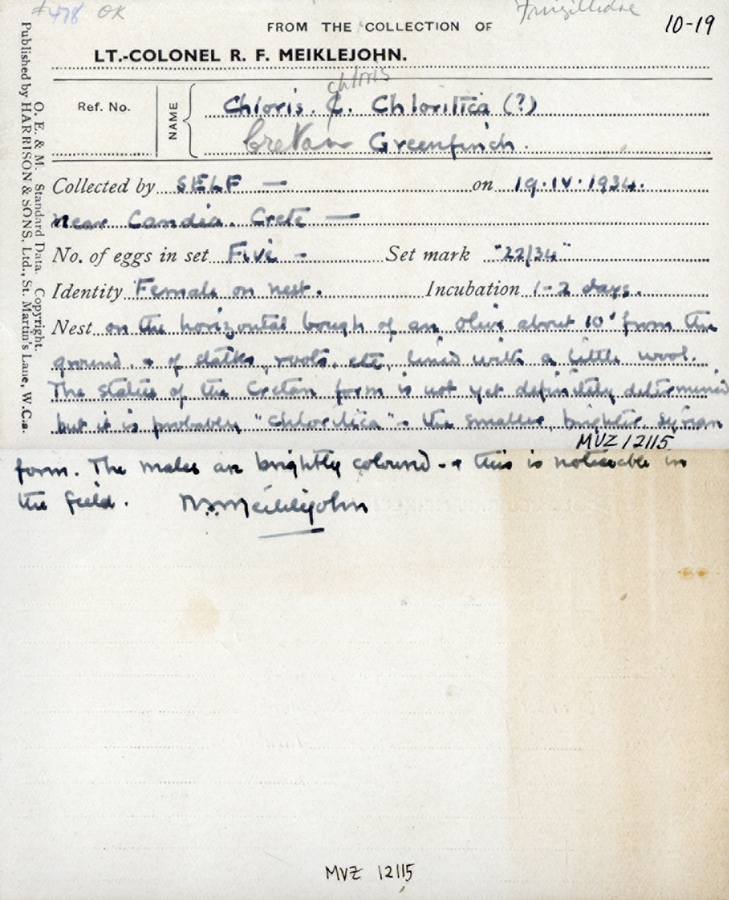 #478 OK
Fringillidae
10-19
FROM THE COLLECTION OF
LT.-COLONEL R. F. MEIKLEJOHN.
Published by HARRISON & SONS, Ltd., St. Martin's Lane, W.C.2.
O. E. & M. Standard Data. Copyright.
Ref. No.
NAME
chloris
Chloris. C. Chlorilica (?)
Cretan Greenfinch.
Collected by SELF — on 19.IV.1934.
near Candia. Crete —
No. of eggs in set Five - Set mark "22/34"
Identity Female on nest. Incubation 1-2 days.
Nest on the horizontal bough of an olive about 10' from the
ground. & of stalks, roots, etc, lined with a little wool.
The status of the Cretan form is not yet definitely determined
but it is probably "chlorilica" - the smaller, brighter Syrian
MVZ 12115
form. The males are brightly coloured - & this is noticeable in
the field. R.F. Meiklejohn
MVZ 12115